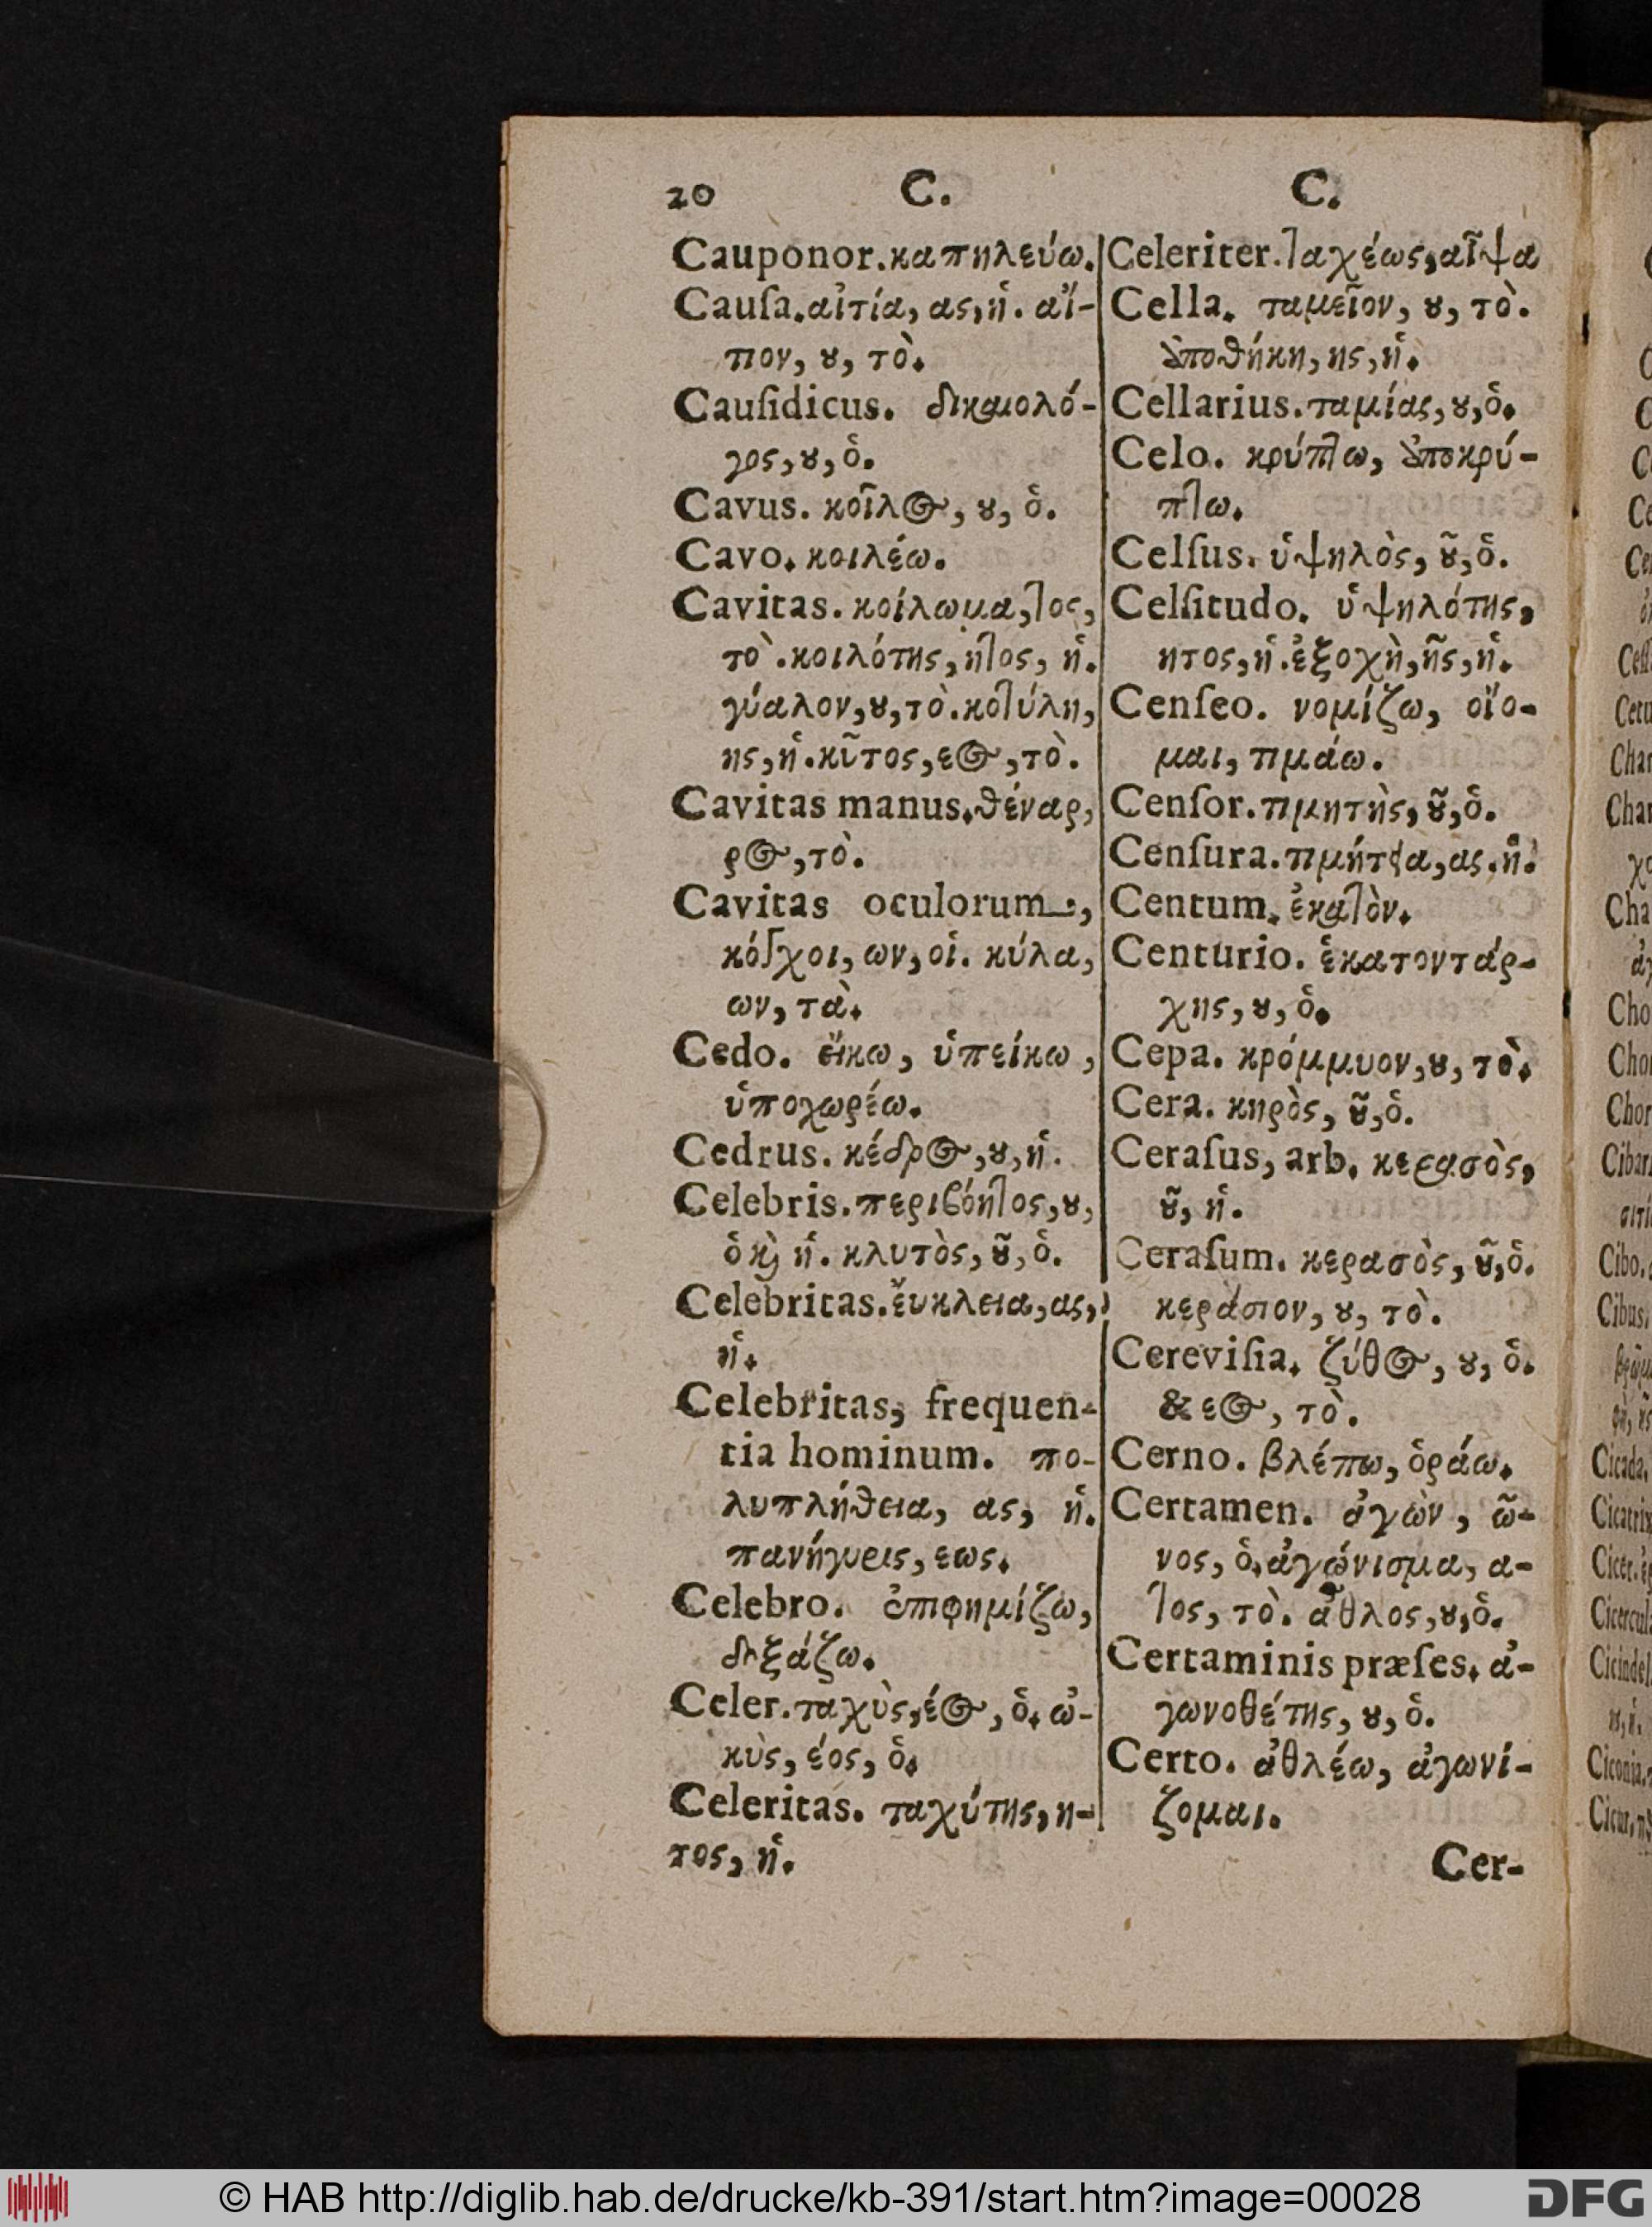 20 C. C.
Cauponor. καπηλεύω.
Cauſa. αἰτία, ας, ἡ. αἴ-
τιον, ȣ, τὸ.
Cauſidicus. δικαιολό-
γος, ȣ, ὁ.
Cavus. κοῖλος, ȣ, ὁ.
Cavo. κοιλέω.
Cavitas. κοίλωμα, τος,
τὸ. κοιλότης, ητος, ἡ.
γύαλον, ȣ, τὸ. κοτύλη,
ης, ἡ. κῦτος, εος, τὸ.
Cavitas manus. θέναρ,
ρος, τὸ.
Cavitas oculorum,
κόγχοι, ων, οἱ. κύλα,
ων, τὰ.
Cedo. εἴκω, ὑπείκω,
ὑποχωρέω.
Cedrus. κέδρος, ȣ, ἡ.
Celebris. περιβόητος, ȣ,
ὁ ϗ ἡ. κλυτὸς, ȣ͂, ὁ.
Celebritas. ἔυκλεια, ας,
ἡ.
Celebritas, frequen-
tia hominum. πο-
λυπλήθεια, ας, ἡ.
πανήγυρις, εως.
Celebro. ἐπιφημίζω,
δοξάζω.
Celer. ταχὺς, έος, ὁ. ὠ-
κὺς, έος, ὁ.
Celeritas. ταχύτης, η-
τος, ἡ.
Celeriter. ταχέως, αἶψα
Cella. ταμεῖον, ȣ, τὸ.
ἀποθήκη, ης, ἡ.
Cellarius. ταμίας, ȣ, ὁ.
Celo. κρύπτω, ἀποκρύ-
πτω.
Celſus. ὑψηλὸς, ȣ͂, ὁ.
Celſitudo. ὑψηλότης,
ητος, ἡ. ἐξοχὴ, ῆς, ἡ.
Cenſeo. νομίζω, οἴο-
μαι, τιμάω.
Cenſor. τιμητὴς, ȣ͂, ὁ.
Cenſura. τιμήτεια, ας. ἡ.
Centum. ἑκατὸν.
Centurio. ἑκατοντάρ-
χης, ȣ, ὁ.
Cepa. κρόμμυον, ȣ, τὸ.
Cera. κηρὸς, ȣ͂, ὁ.
Ceraſus, arb. κερασὸς,
ȣ͂, ἡ.
Ceraſum. κερασὸς, ȣ͂, ὁ.
κεράσιον, ȣ, τὸ.
Cereviſia. ζύθος, ȣ, ὁ.
& εος, τὸ.
Cerno. βλέπω, ὁράω.
Certamen. ἀγὼν, ῶ-
νος, ὁ. ἀγώνισμα, α-
τος, τὸ. ἆθλος, ȣ, ὁ.
Certaminis præſes. ἀ-
γωνοθέτης, ȣ, ὁ.
Certo. ἀθλέω, ἀγωνί-
ζομαι.
Cer-
© HAB http://diglib.hab.de/drucke/kb-391/start.htm?image=00028
DFG